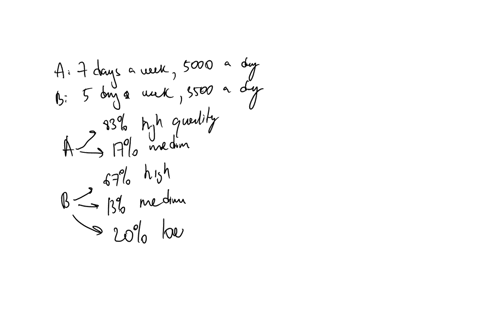 A: 7 days a week, 5000 a day
B: 5 days a week, 3500 a day
83% high quality
A 17% medium
67% high
B 13% medium
20% low